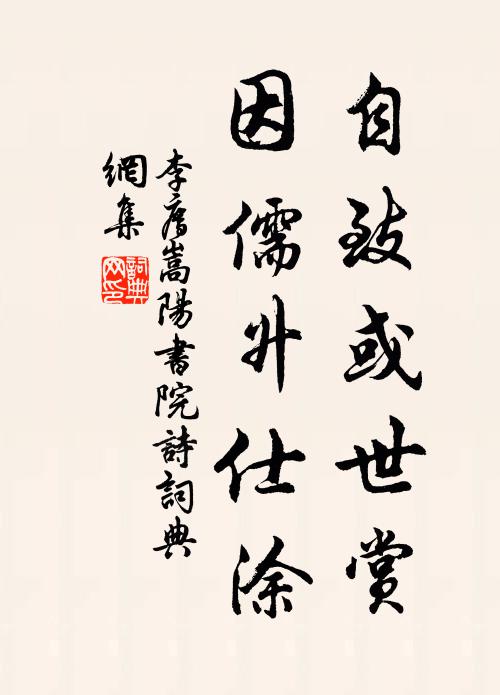 自致或世賞
因儒升仕涂
李廌嵩陽書院詩詞典
網集
詞典
网印